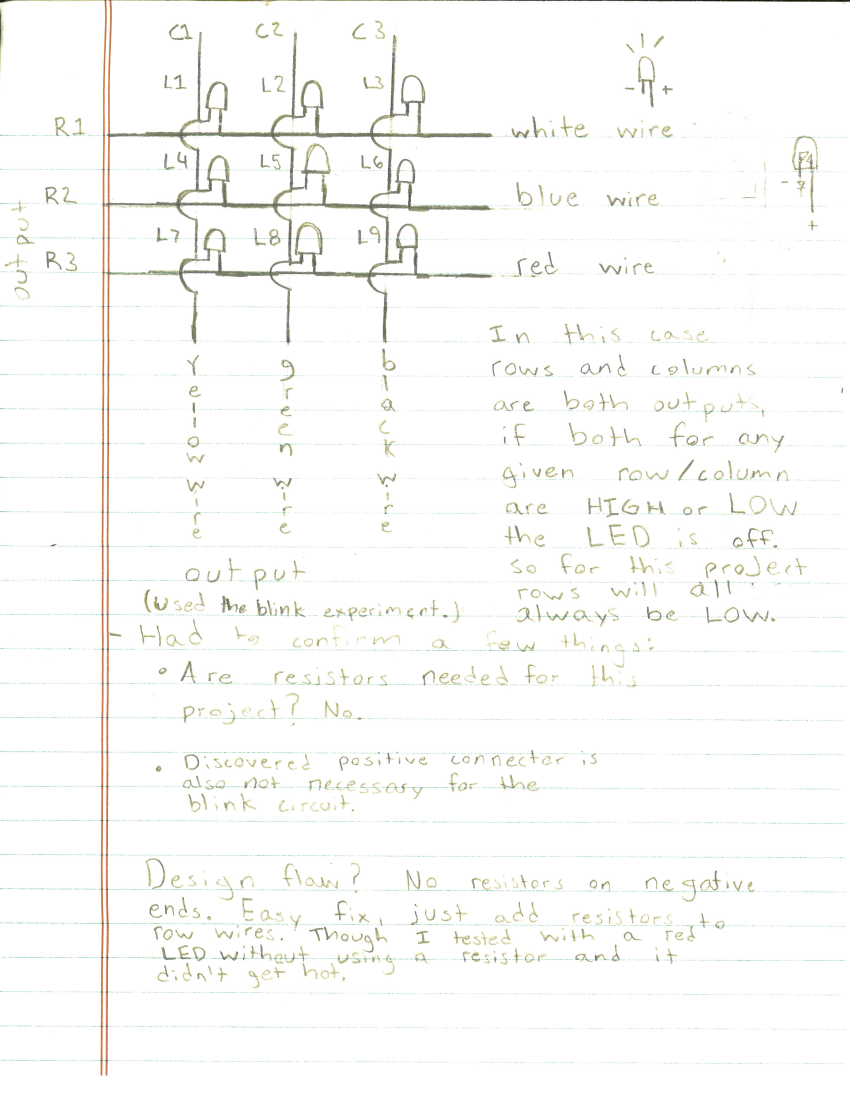 C1 C2 C3
L1 L2 L3
- +
R1 white wire
L4 L5 L6
- +
R2 blue wire
output
L7 L8 L9
R3 red wire
yellow wire
green wire
black wire
output
In this case
rows and columns
are both outputs,
if both for any
given row/column
are HIGH or LOW
the LED is off.
so for this project
rows will all
always be LOW.
(Used the blink experiment.)
- Had to confirm a few things:
• Are resistors needed for this
project? No.
• Discovered positive connector is
also not necessary for the
blink circuit.
Design flaw? No resistors on negative
ends. Easy fix, just add resistors to
row wires. Though I tested with a red
LED without using a resistor and it
didn't get hot.